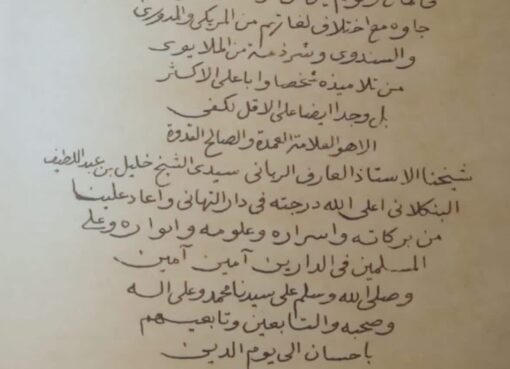 جاوه مع اختلاف لغاتهم من المريكي والمدوري
والسندوي وشرذمة من الملايوي
من تلاميذه شخصا وابا على الاكثر
بل وجدا ايضا على الاقل لكفى
الا هو العلامة العمدة والصالح القدوة
شيخنا الاستاذ العارف الرباني سيدي الشيخ خليل بن عبد اللطيف
البنكلاني اعلى الله درجته في دار التهاني واعاد علينا
من بركاته واسراره وعلومه وانواره وعلى
المسلمين في الدارين آمين آمين
وصلى الله وسلم على سيدنا محمد وعلى اله
وصحبه والتابعين وتابعيهم
باحسان الى يوم الدين